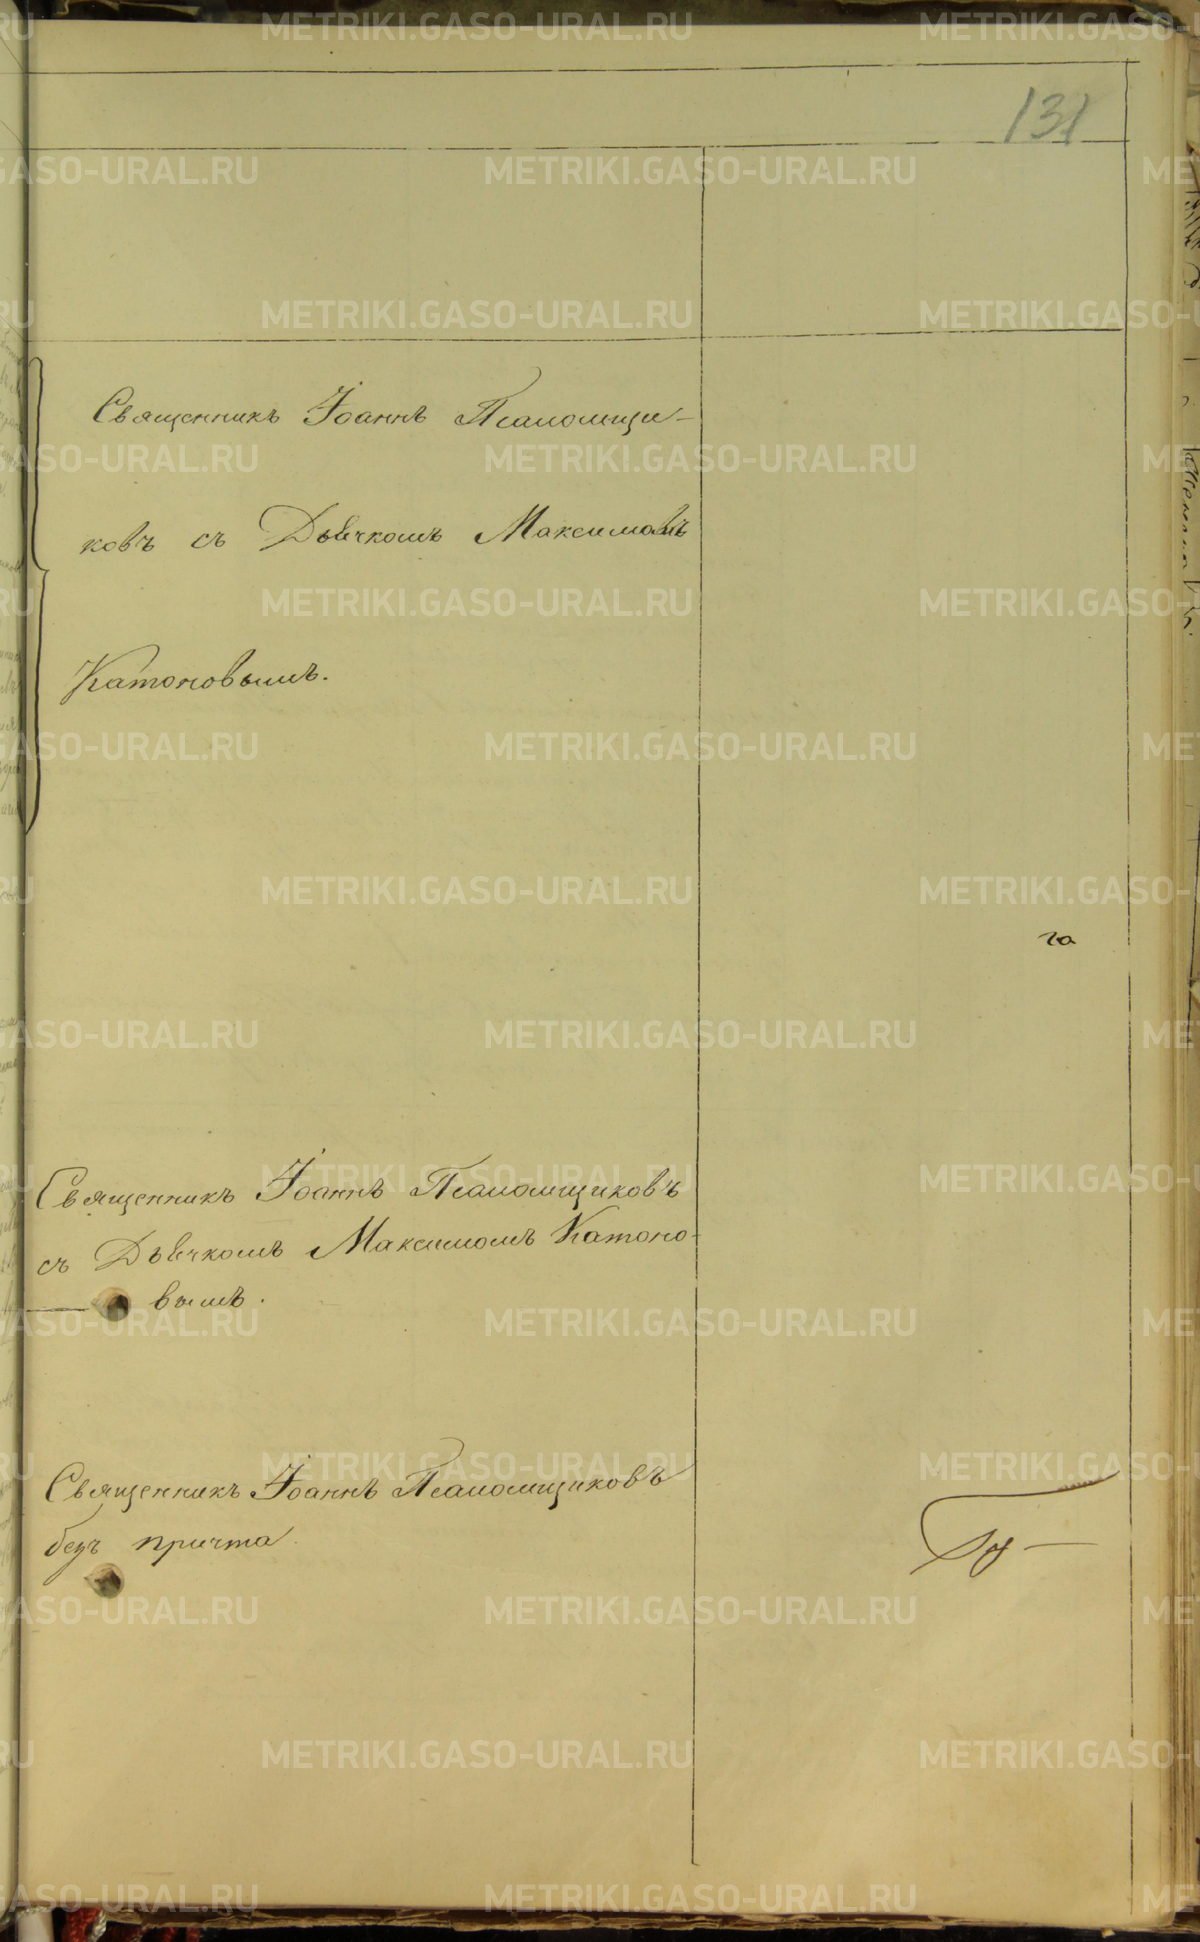 131
Священникъ Іоаннъ Псаломщи-
ковъ съ Дьячкомъ Максимомъ
Катоновымъ.
га
Священникъ Іоаннъ Псаломщиковъ
съ Дьячкомъ Максимомъ Катоно-
вымъ.
Священникъ Іоаннъ Псаломщиковъ
безъ причта
METRIKI.GASO-URAL.RU